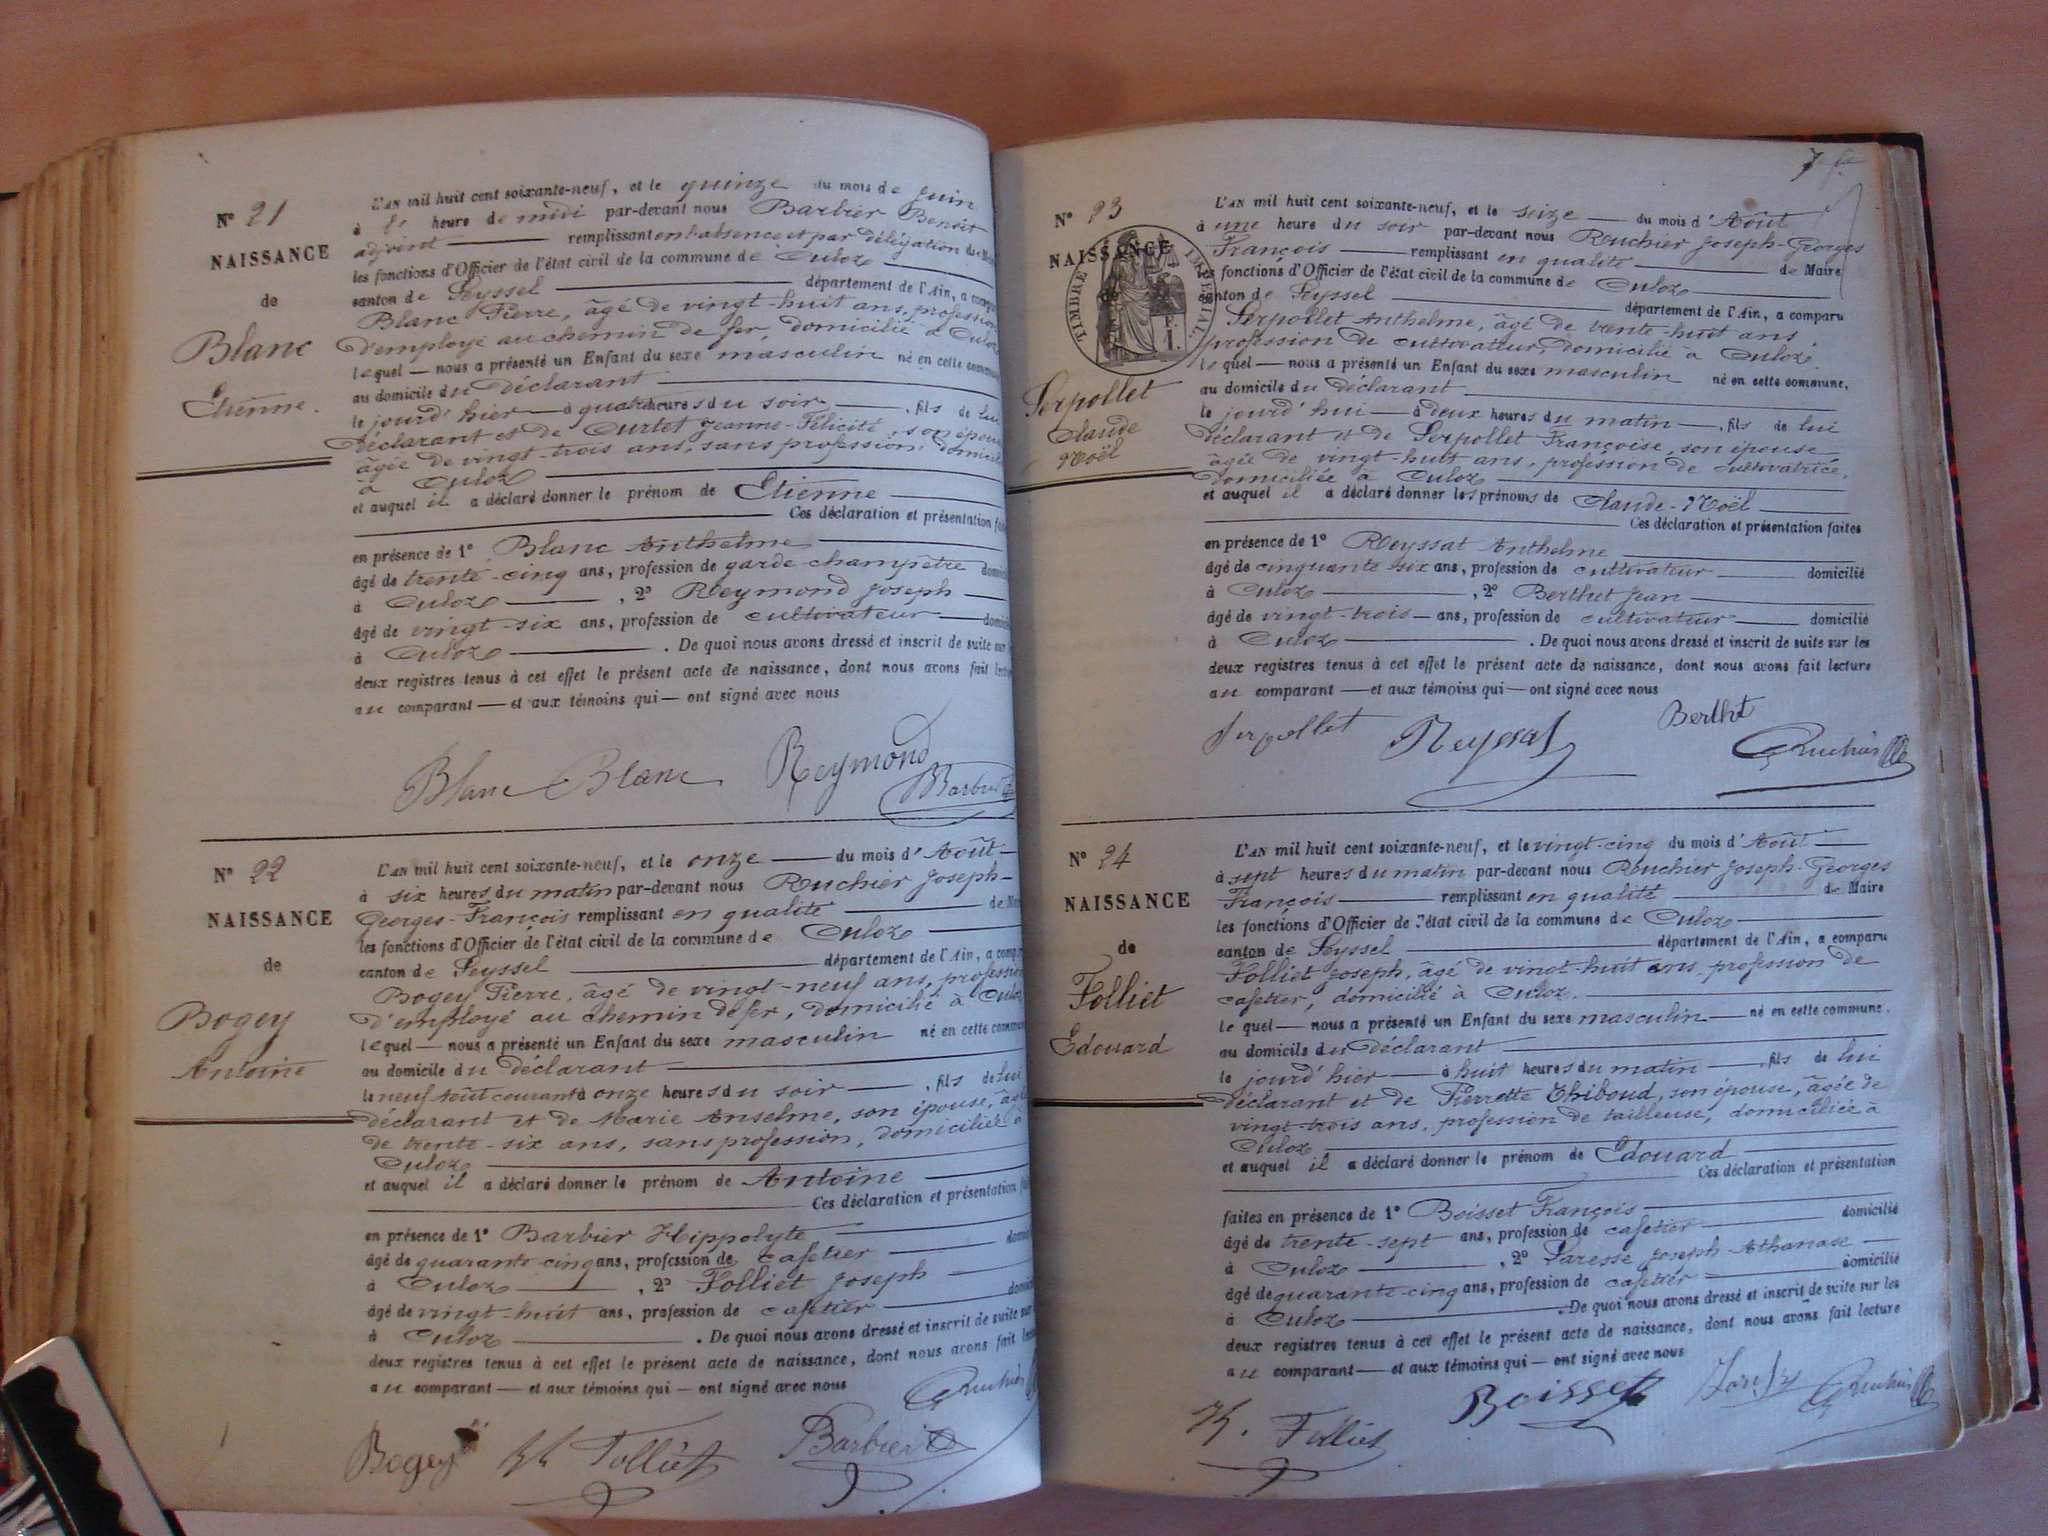 N° 21
NAISSANCE
de
Blanc
Etienne.
L'AN mil huit cent soixante-neuf, et le quinze du mois de Juin
à heure de midi par-devant nous Barbier Benoit
adjoint remplissant en l'absence et par délégation du
les fonctions d'Officier de l'état civil de la commune de Culoz
canton de Seyssel département de l'Ain, a
Blanc Pierre, âgé de vingt-huit ans, profession
d'employé au chemin de fer, domicilié à Culoz
lequel — nous a présenté un Enfant du sexe masculin né en cette commune
au domicile du déclarant
le jourd'hier à quatre heures du soir, fils de lui
déclarant et de Curtet Jeanne-Félicité, son épouse
âgée de vingt-trois ans, sans profession,
à Culoz
et auquel il a déclaré donner le prénom de Etienne
Ces déclaration et présentation
en présence de 1° Blanc Anthelme
âgé de trente-cinq ans, profession de garde-champêtre
à Culoz, 2° Reymond Joseph
âgé de vingt-six ans, profession de cultivateur
à Culoz. De quoi nous avons dressé et inscrit de suite sur
deux registres tenus à cet effet le présent acte de naissance, dont nous avons fait
au comparant — et aux témoins qui — ont signé avec nous
Blanc Blanc Reymond
Barbier
N° 22
NAISSANCE
de
Bogey
Antoine
L'AN mil huit cent soixante-neuf, et le onze du mois d'Août
à six heures du matin par-devant nous Ruchier Joseph-
Georges-François remplissant en qualité de
les fonctions d'Officier de l'état civil de la commune de Culoz
canton de Seyssel département de l'Ain, a
Bogey Pierre, âgé de vingt-neuf ans, profession
d'employé au chemin de fer, domicilié à Culoz
lequel — nous a présenté un Enfant du sexe masculin né en cette commune
au domicile du déclarant
le neuf août courant à onze heures du soir, fils de lui
déclarant et de Marie Anselme, son épouse, âgée
de trente-six ans, sans profession, domiciliée à
Culoz
et auquel il a déclaré donner le prénom de Antoine
Ces déclaration et présentation
en présence de 1° Barbier Hippolyte
âgé de quarante-cinq ans, profession de cafetier
à Culoz, 2° Folliet Joseph
âgé de vingt-huit ans, profession de cafetier
à Culoz. De quoi nous avons dressé et inscrit de suite sur
deux registres tenus à cet effet le présent acte de naissance, dont nous avons fait
au comparant — et aux témoins qui — ont signé avec nous
Ruchier
Bogey Folliet Barbier
N° 23
NAISSANCE
de
TIMBRE IMPÉRIAL
Serpollet
Claude
Noël
L'AN mil huit cent soixante-neuf, et le seize — du mois d'Août
à une heure du soir par-devant nous Ruchier Joseph-Georges
François remplissant en qualité de Maire
les fonctions d'Officier de l'état civil de la commune de Culoz
canton de Seyssel département de l'Ain, a comparu
Serpollet Anthelme, âgé de trente-huit ans,
profession de cultivateur, domicilié à Culoz,
lequel — nous a présenté un Enfant du sexe masculin né en cette commune,
au domicile du déclarant
le jourd'hui — à deux heures du matin —, fils de lui
déclarant et de Serpollet Françoise, son épouse
âgée de vingt-huit ans, profession de cultivatrice,
domiciliée à Culoz
et auquel il a déclaré donner les prénoms de Claude-Noël
Ces déclaration et présentation faites
en présence de 1° Reyssat Anthelme
âgé de cinquante six ans, profession de cultivateur domicilié
à Culoz, 2° Berthet Jean
âgé de vingt-trois — ans, profession de cultivateur domicilié
à Culoz. De quoi nous avons dressé et inscrit de suite sur les
deux registres tenus à cet effet le présent acte de naissance, dont nous avons fait lecture
au comparant — et aux témoins qui — ont signé avec nous
Serpollet Reyssat Berthet
Ruchier
N° 24
NAISSANCE
de
Folliet
Edouard
L'AN mil huit cent soixante-neuf, et le vingt-cinq du mois d'Août
à sept heures du matin par-devant nous Ruchier Joseph-Georges
François remplissant en qualité de Maire
les fonctions d'Officier de l'état civil de la commune de Culoz
canton de Seyssel département de l'Ain, a comparu
Folliet Joseph, âgé de vingt-huit ans, profession de
cafetier, domicilié à Culoz.
lequel — nous a présenté un Enfant du sexe masculin — né en cette commune.
au domicile du déclarant
le jourd'hier — à huit heures du matin —, fils de lui
déclarant et de Pierrette Thiboud, son épouse, âgée de
vingt-trois ans, profession de tailleuse, domiciliée à
Culoz
et auquel il a déclaré donner le prénom de Edouard
Ces déclaration et présentation
faites en présence de 1° Boisset François
âgé de trente-sept ans, profession de cafetier domicilié
à Culoz, 2° Joseph-Athanase
âgé de quarante-cinq ans, profession de cafetier domicilié
à Culoz. De quoi nous avons dressé et inscrit de suite sur les
deux registres tenus à cet effet le présent acte de naissance, dont nous avons fait lecture
au comparant — et aux témoins qui — ont signé avec nous
Folliet Boisset Ruchier